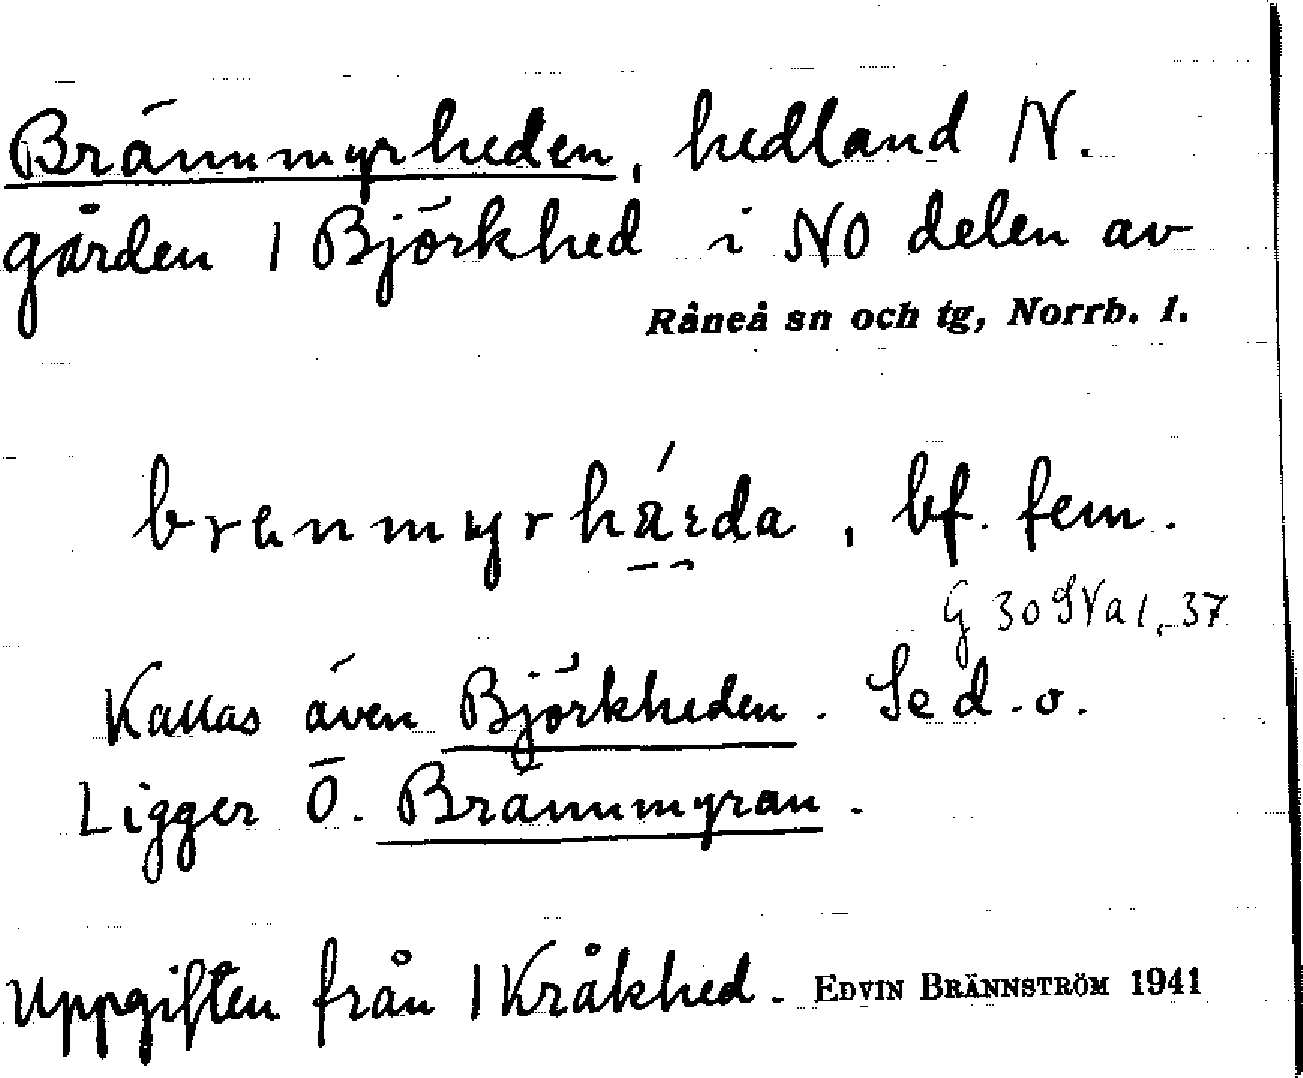 Brännmyrheden, hedland N.
gården 1 Björkhed i NO delen av
Råneå sn och tg, Norrb. l.
brenmyrhá̱ɛda, bf. fem.
G 30 SVa 1, 37
Kallas även Björkheden. Se d. o.
Ligger Ö. Brännmyran.
Uppgiften från 1 Kråkhed. EDVIN BRÄNNSTRÖM 1941